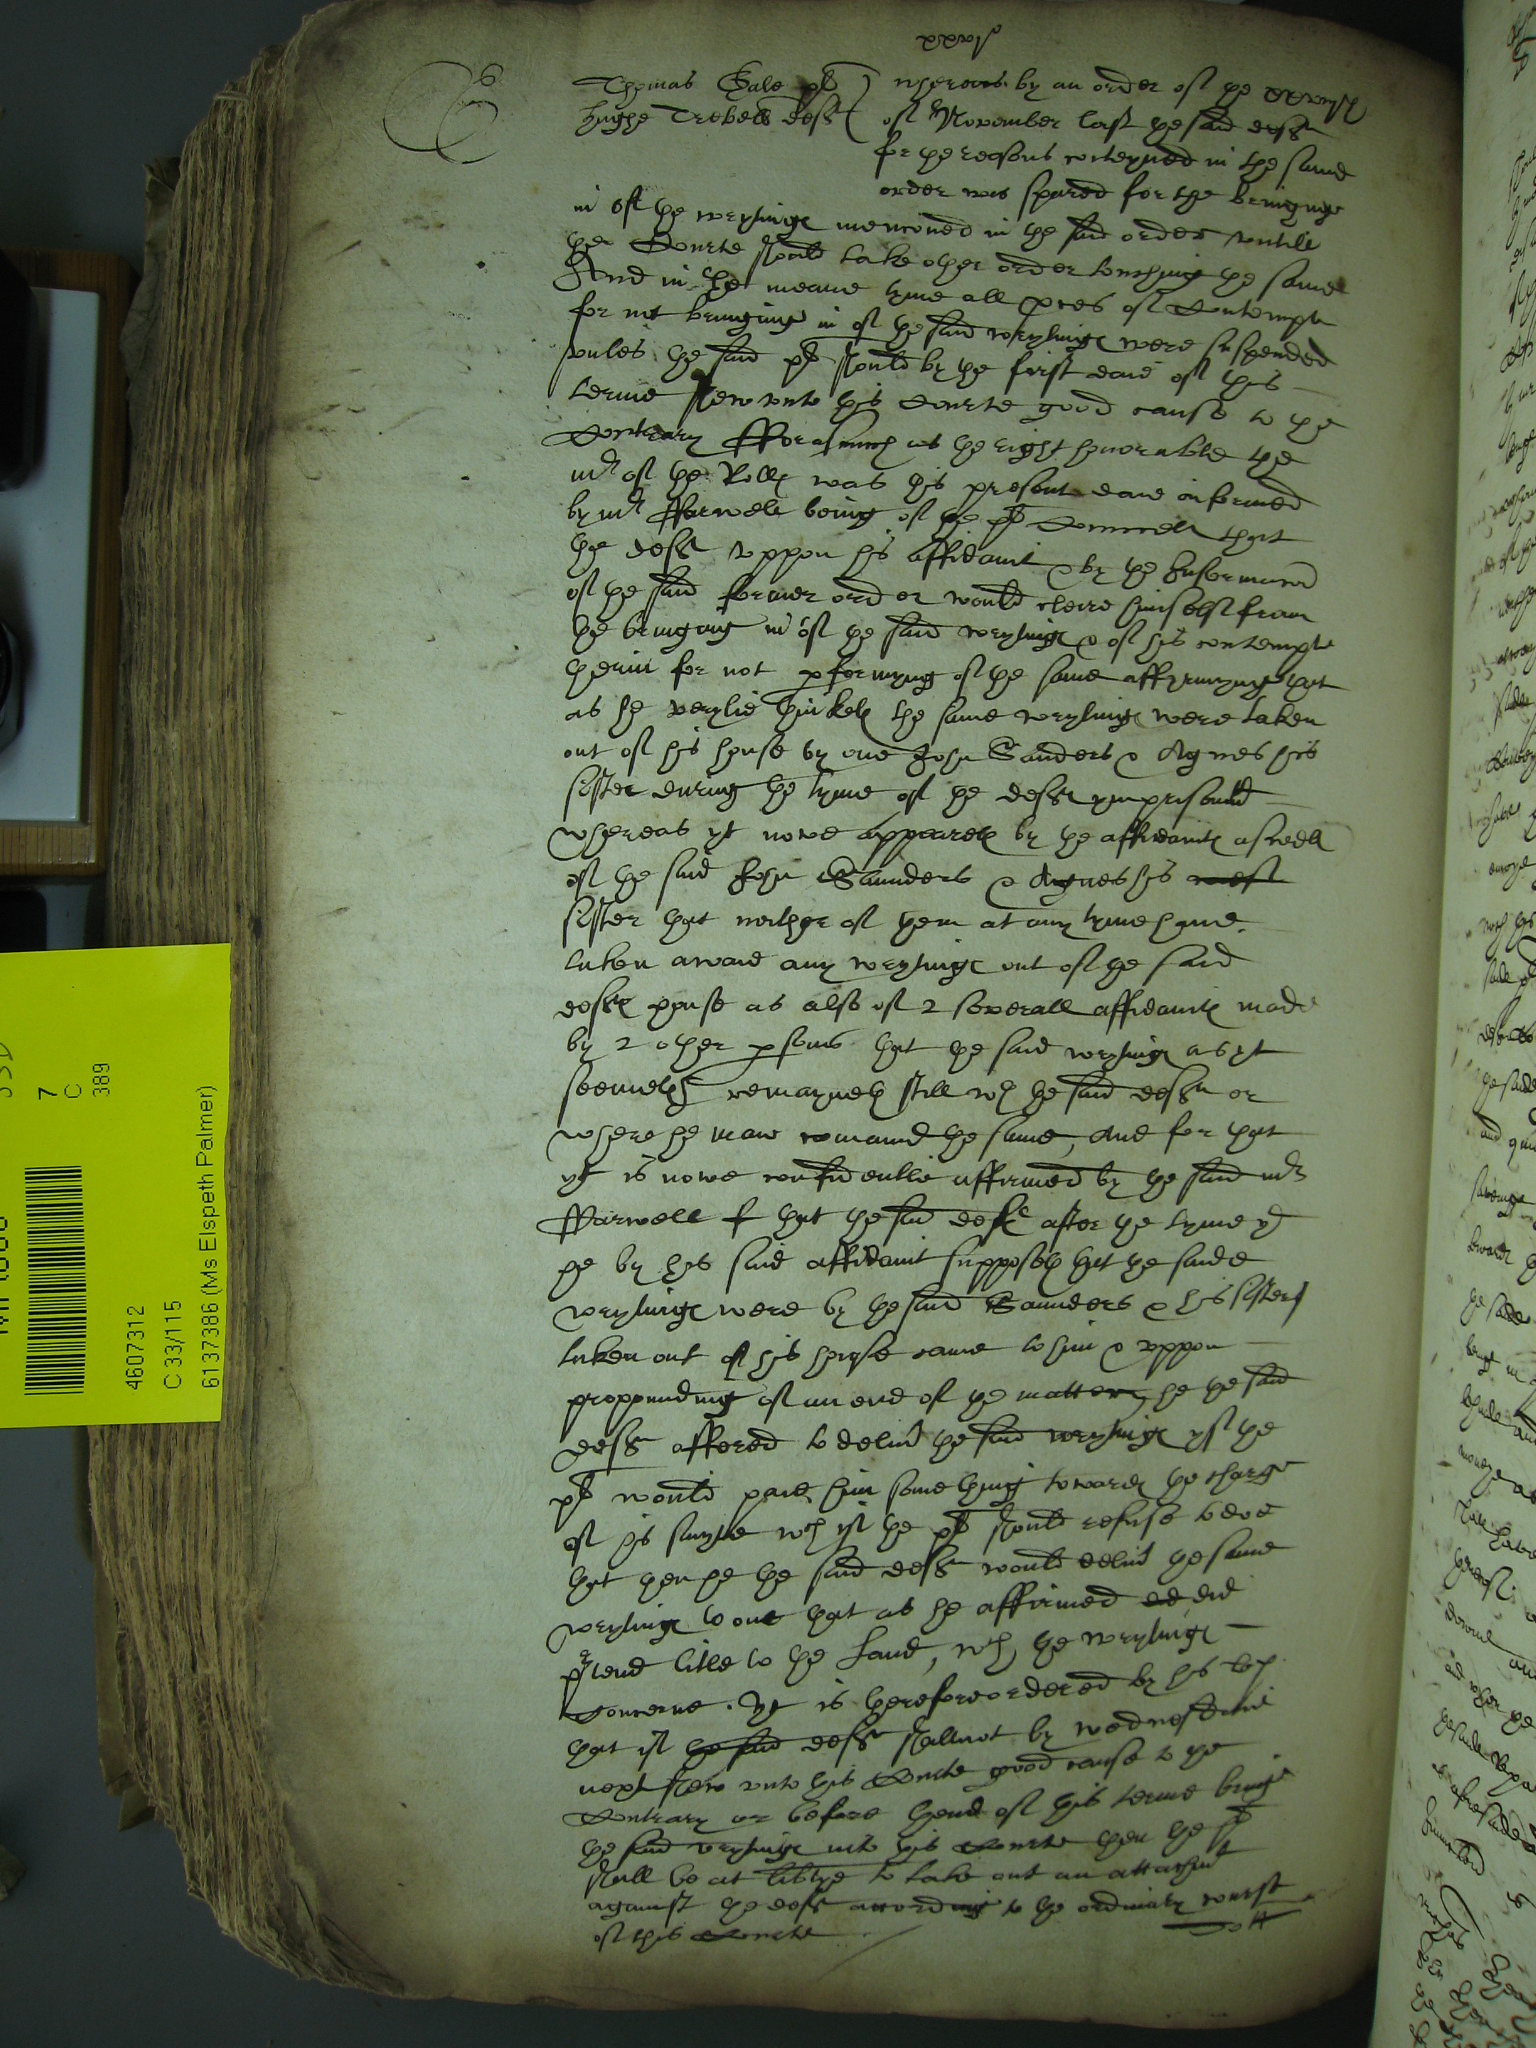 Thomas Gale pl
Hughe Trebell deft
whereas by an order of the
of November last the said deft
for the reasons conteyned in the same
order was spared for the bringinge
in of the wrytinge mencioned in the said order untill
the Courte should take other order touching the same
And in the meane tyme all pces of Contempte
for not bringing in of the said wrytinge were suspended
unles the said pl should by the first daie of this
terme shew unto this Courte good cause to the
Contrary fforasmuch as the right honorable the
mr of the Rolls was this present daie informed
by mr ffarwell being of the pl Councell that
the deft uppon his affidavit & by the Informacon
of the said former order would cleire himselfe from
the bringing in of the said wrytinge & of his contempte
therin for not pforming of the same affyrmynge that
as he verylie thinketh the same wrytinge were taken
out of his house by one John Sanders & Agnes his
sister during the tyme of the defts ymprisonmt
whereas yt nowe appeareth by the affidavits aswell
of the said John Saunders & Agnes his
sister that neither of them at any tyme have
taken awaie any wrytinge out of the said
defts house as also of 2 severall affidavits made
by 2 other psons that the said wrytinge as yt
seemeth remayneth still wth the said deft or
where he maie comaund the same, And for that
yt is nowe confidentlie affirmed by the said mr
ffarwell that the said deft after the tyme yt
he by his said affidavit supposeth that the saide
wrytinge were by the said Saunders & his sister
taken out of his house came to him & uppon
propounding of an end of the matter he the said
deft offered to deliver the said wrytinge yf the
pl would paie him something towards the charge
of his suyte wch if the pl should refuse to doe
that then he the said deft would deliver the same
wrytinge to one that as he affirmed did
ptend title to the Land, wch the wrytinge
Concerne. Yt is therefore ordered by his Lp
that if the said deft shall not by wednesdaie
next shew unto this Courte good cause to the
Contrary or before thend of this terme bringe
the said wrytinge into this Courte then the pl
shall be at libtye to take out an attachmt
against the deft according to the ordinary course
of this Courte
7
C
389
4607312
C 33/115
6137386 (Ms Elspeth Palmer)